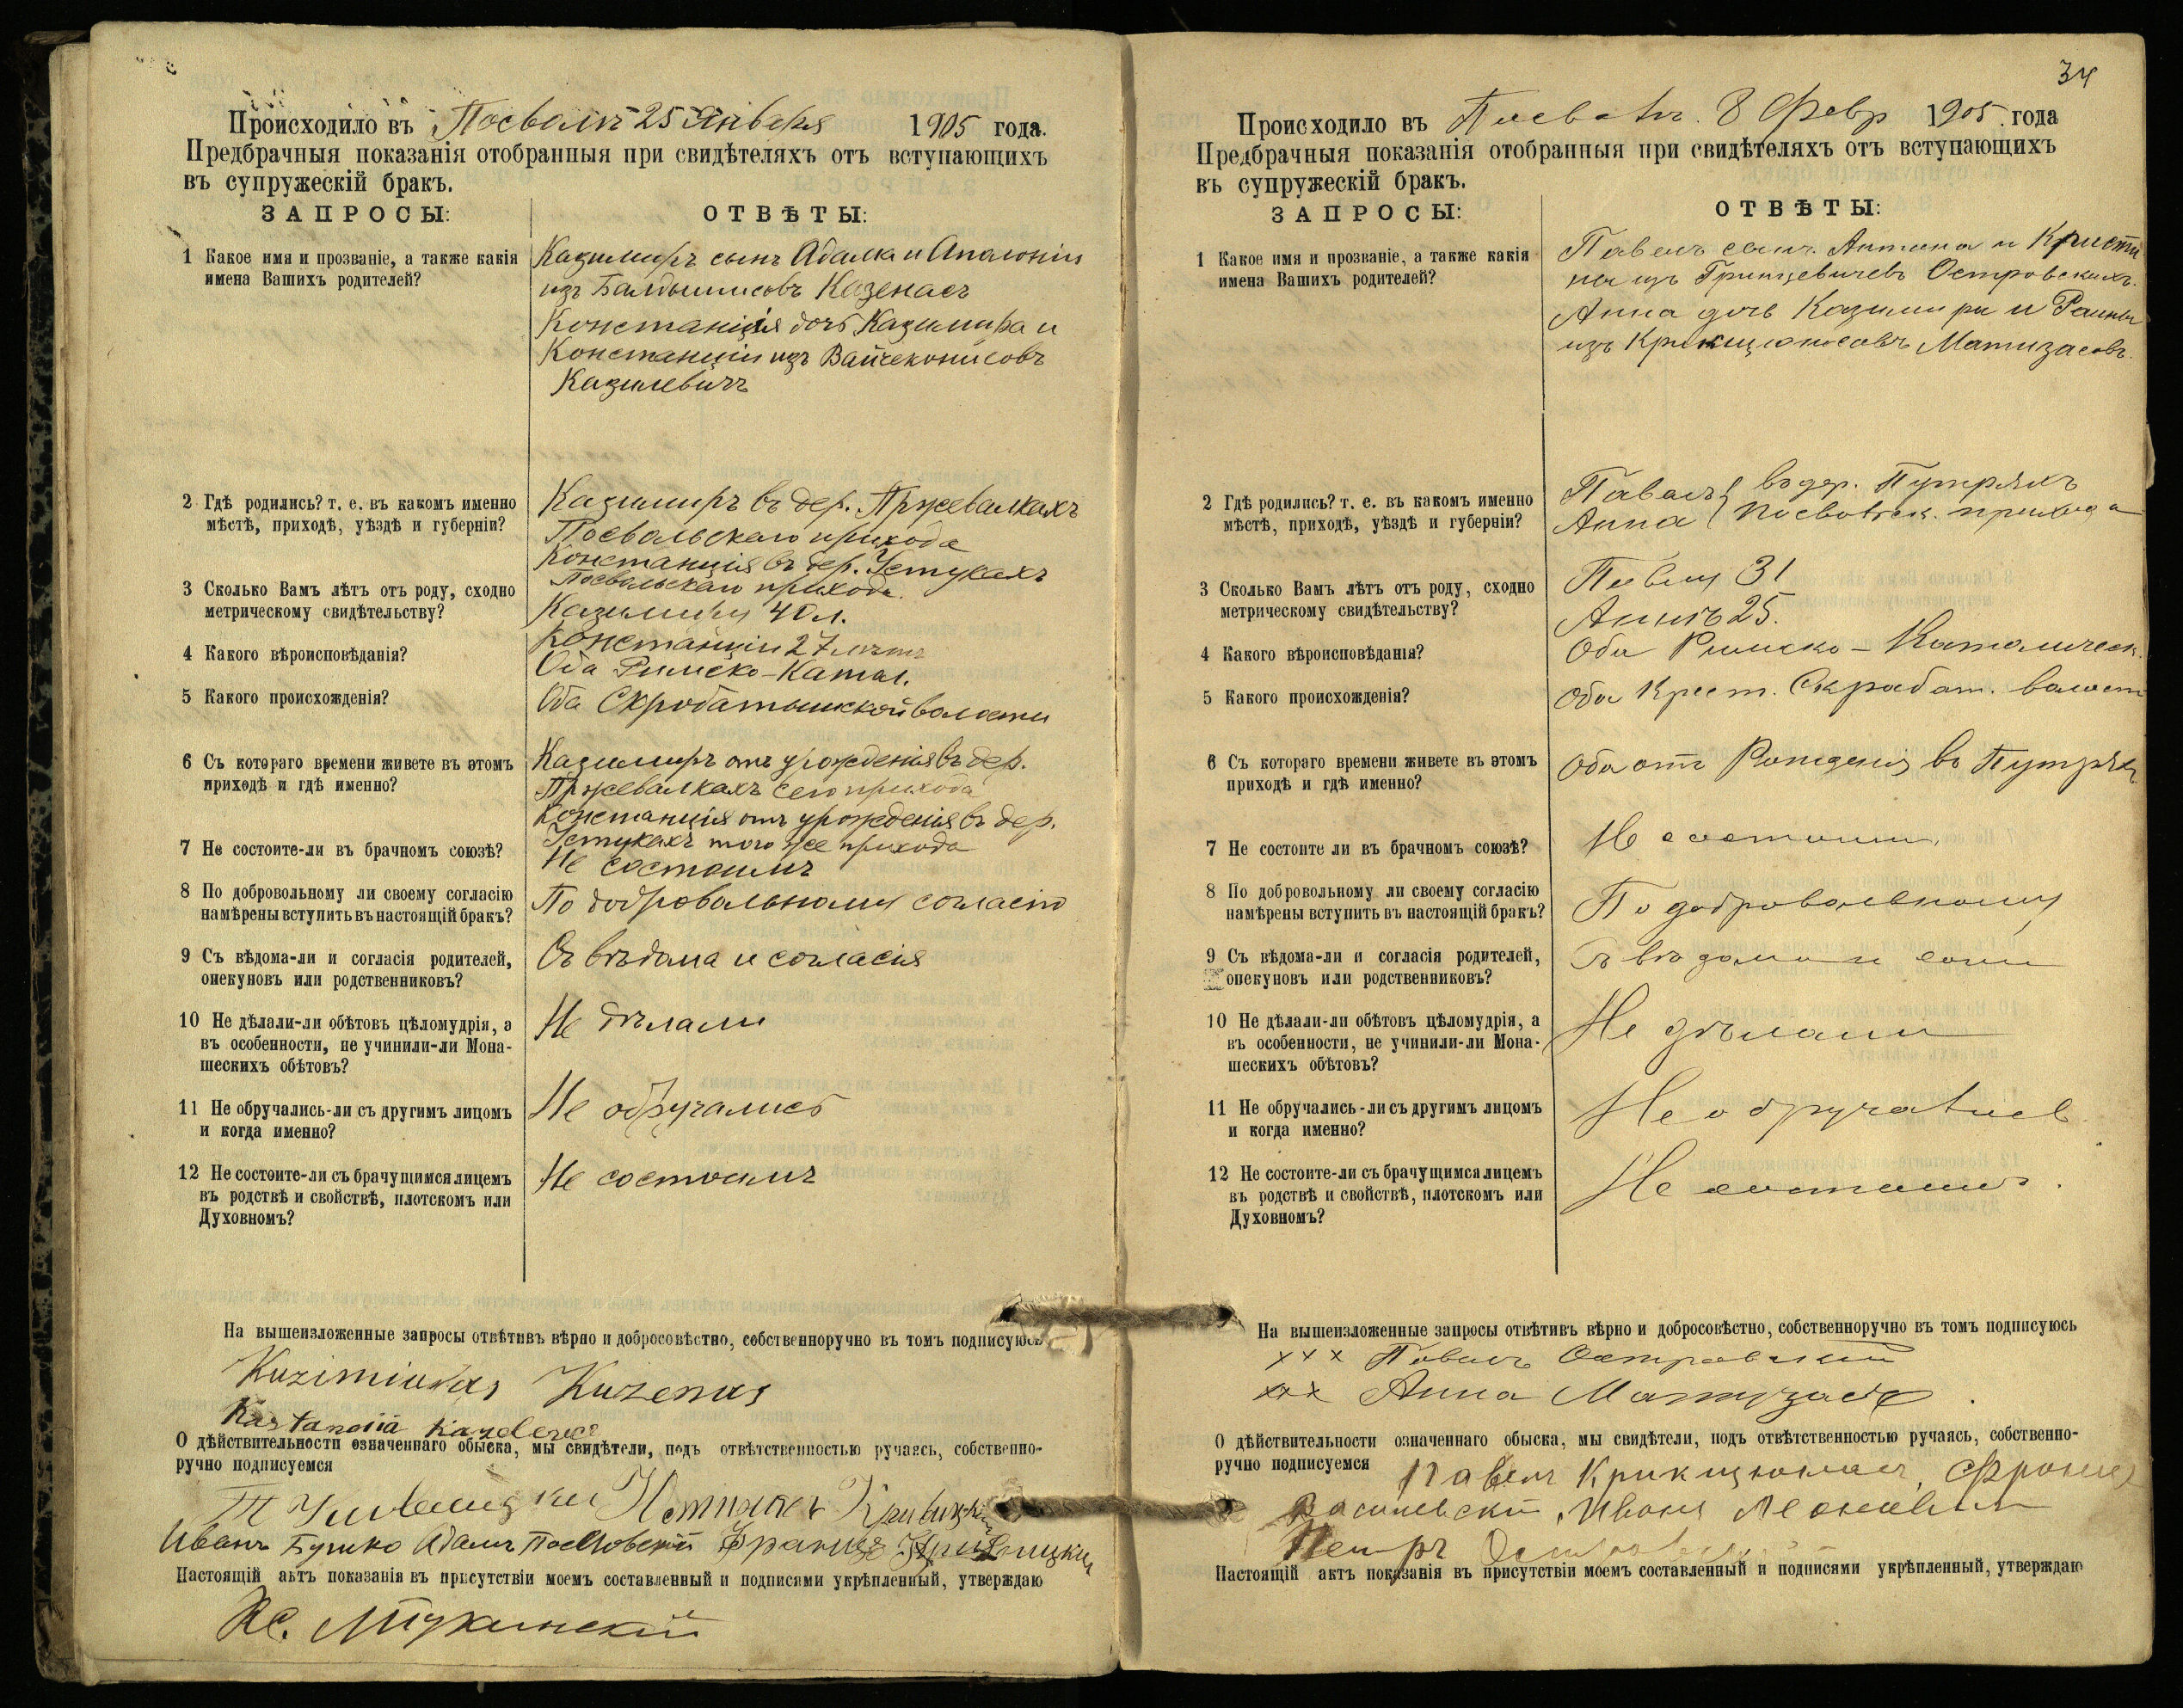 Происходило въ Посволѣ 25 Января 1905 года.
Предбрачныя показанія отобранныя при свидѣтеляхъ отъ вступающихъ
въ супружескій бракъ.
ЗАПРОСЫ:
ОТВѢТЫ:
1 Какое имя и прозваніе, а также какія
имена Вашихъ родителей?
Казимиръ сынъ Адама и Аполоніи
изъ Балдышисовъ Казенасъ
Констанція дочь Казимира и
Констанціи изъ Вайчеконисовъ
Казилевичъ
2 Гдѣ родились? т. е. въ какомъ именно
мѣстѣ, приходѣ, уѣздѣ и губерніи?
Казимиръ въ дер. Пржевалкахъ
Посвольскаго прихода
Констанція въ дер. Устукахъ
Посвольскаго прихода.
3 Сколько Вамъ лѣтъ отъ роду, сходно
метрическому свидѣтельству?
Казимиру 40 л.
Констанціи 27 лѣтъ
4 Какого вѣроисповѣданія?
Оба Римско-Катол.
5 Какого происхожденія?
Оба Скробатышской волости
6 Съ котораго времени живете въ этомъ
приходѣ и гдѣ именно?
Казимиръ отъ урожденія въ дер.
Пржевалкахъ сего прихода
Констанція отъ урожденія въ дер.
Устукахъ того же прихода
7 Не состоите-ли въ брачномъ союзѣ?
Не состоимъ
8 По добровольному ли своему согласію
намѣрены вступить въ настоящій бракъ?
По добровольному согласію
9 Съ вѣдома-ли и согласія родителей,
опекуновъ или родственниковъ?
Съ вѣдома и согласія
10 Не дѣлали-ли обѣтовъ цѣломудрія, а
въ особенности, не учинили-ли Мона-
шескихъ обѣтовъ?
Не дѣлали
11 Не обручались-ли съ другимъ лицомъ
и когда именно?
Не обручались
12 Не состоите-ли съ брачущимся лицемъ
въ родствѣ и свойствѣ, плотскомъ или
Духовномъ?
Не состоимъ
На вышеизложенные запросы отвѣтивъ вѣрно и добросовѣстно, собственноручно въ томъ подписуюсь
Kuzenas
О дѣйствительности означеннаго обыска, мы свидѣтели, подъ отвѣтственностью ручаясь, собственно-
ручно подписуемся
Иванъ Бушко Адамъ
Настоящій актъ показанія въ присутствіи моемъ составленный и подписями укрѣпленный, утверждаю
34
Происходило въ 8 Февр 1905 года
Предбрачныя показанія отобранныя при свидѣтеляхъ отъ вступающихъ
въ супружескій бракъ.
ЗАПРОСЫ:
ОТВѢТЫ:
1 Какое имя и прозваніе, а также какія
имена Вашихъ родителей?
Павелъ сынъ Антона и Кристи
ны изъ Гринцевичевъ Островскихъ.
Анна дочь Казимира и
изъ Крикщюнасовъ Матизасовъ.
2 Гдѣ родились? т. е. въ какомъ именно
мѣстѣ, приходѣ, уѣздѣ и губерніи?
Павелъ въ дер.
Анна прихода
3 Сколько Вамъ лѣтъ отъ роду, сходно
метрическому свидѣтельству?
Павлу 31
Аннѣ 25.
4 Какого вѣроисповѣданія?
Оба Римско-Католическ.
5 Какого происхожденія?
Оба Крест. Скробат. волост
6 Съ котораго времени живете въ этомъ
приходѣ и гдѣ именно?
Оба отъ Рожденія въ
7 Не состоите ли въ брачномъ союзѣ?
Не состоимъ
8 По добровольному ли своему согласію
намѣрены вступить въ настоящій бракъ?
По добровольному
9 Съ вѣдома-ли и согласія родителей,
опекуновъ или родственниковъ?
Съ вѣдома и
10 Не дѣлали-ли обѣтовъ цѣломудрія, а
въ особенности, не учинили-ли Мона-
шескихъ обѣтовъ?
Не дѣлали
11 Не обручались-ли съ другимъ лицомъ
и когда именно?
Не обручались
12 Не состоите-ли съ брачущимся лицемъ
въ родствѣ и свойствѣ, плотскомъ или
Духовномъ?
Не состоимъ.
На вышеизложенные запросы отвѣтивъ вѣрно и добросовѣстно, собственноручно въ томъ подписуюсь
xxx Павелъ Островскій
xxx Анна
О дѣйствительности означеннаго обыска, мы свидѣтели, подъ отвѣтственностью ручаясь, собственно-
ручно подписуемся Павелъ
Василевскій, Иванъ
Петръ
Настоящій актъ показанія въ присутствіи моемъ составленный и подписями укрѣпленный, утверждаю